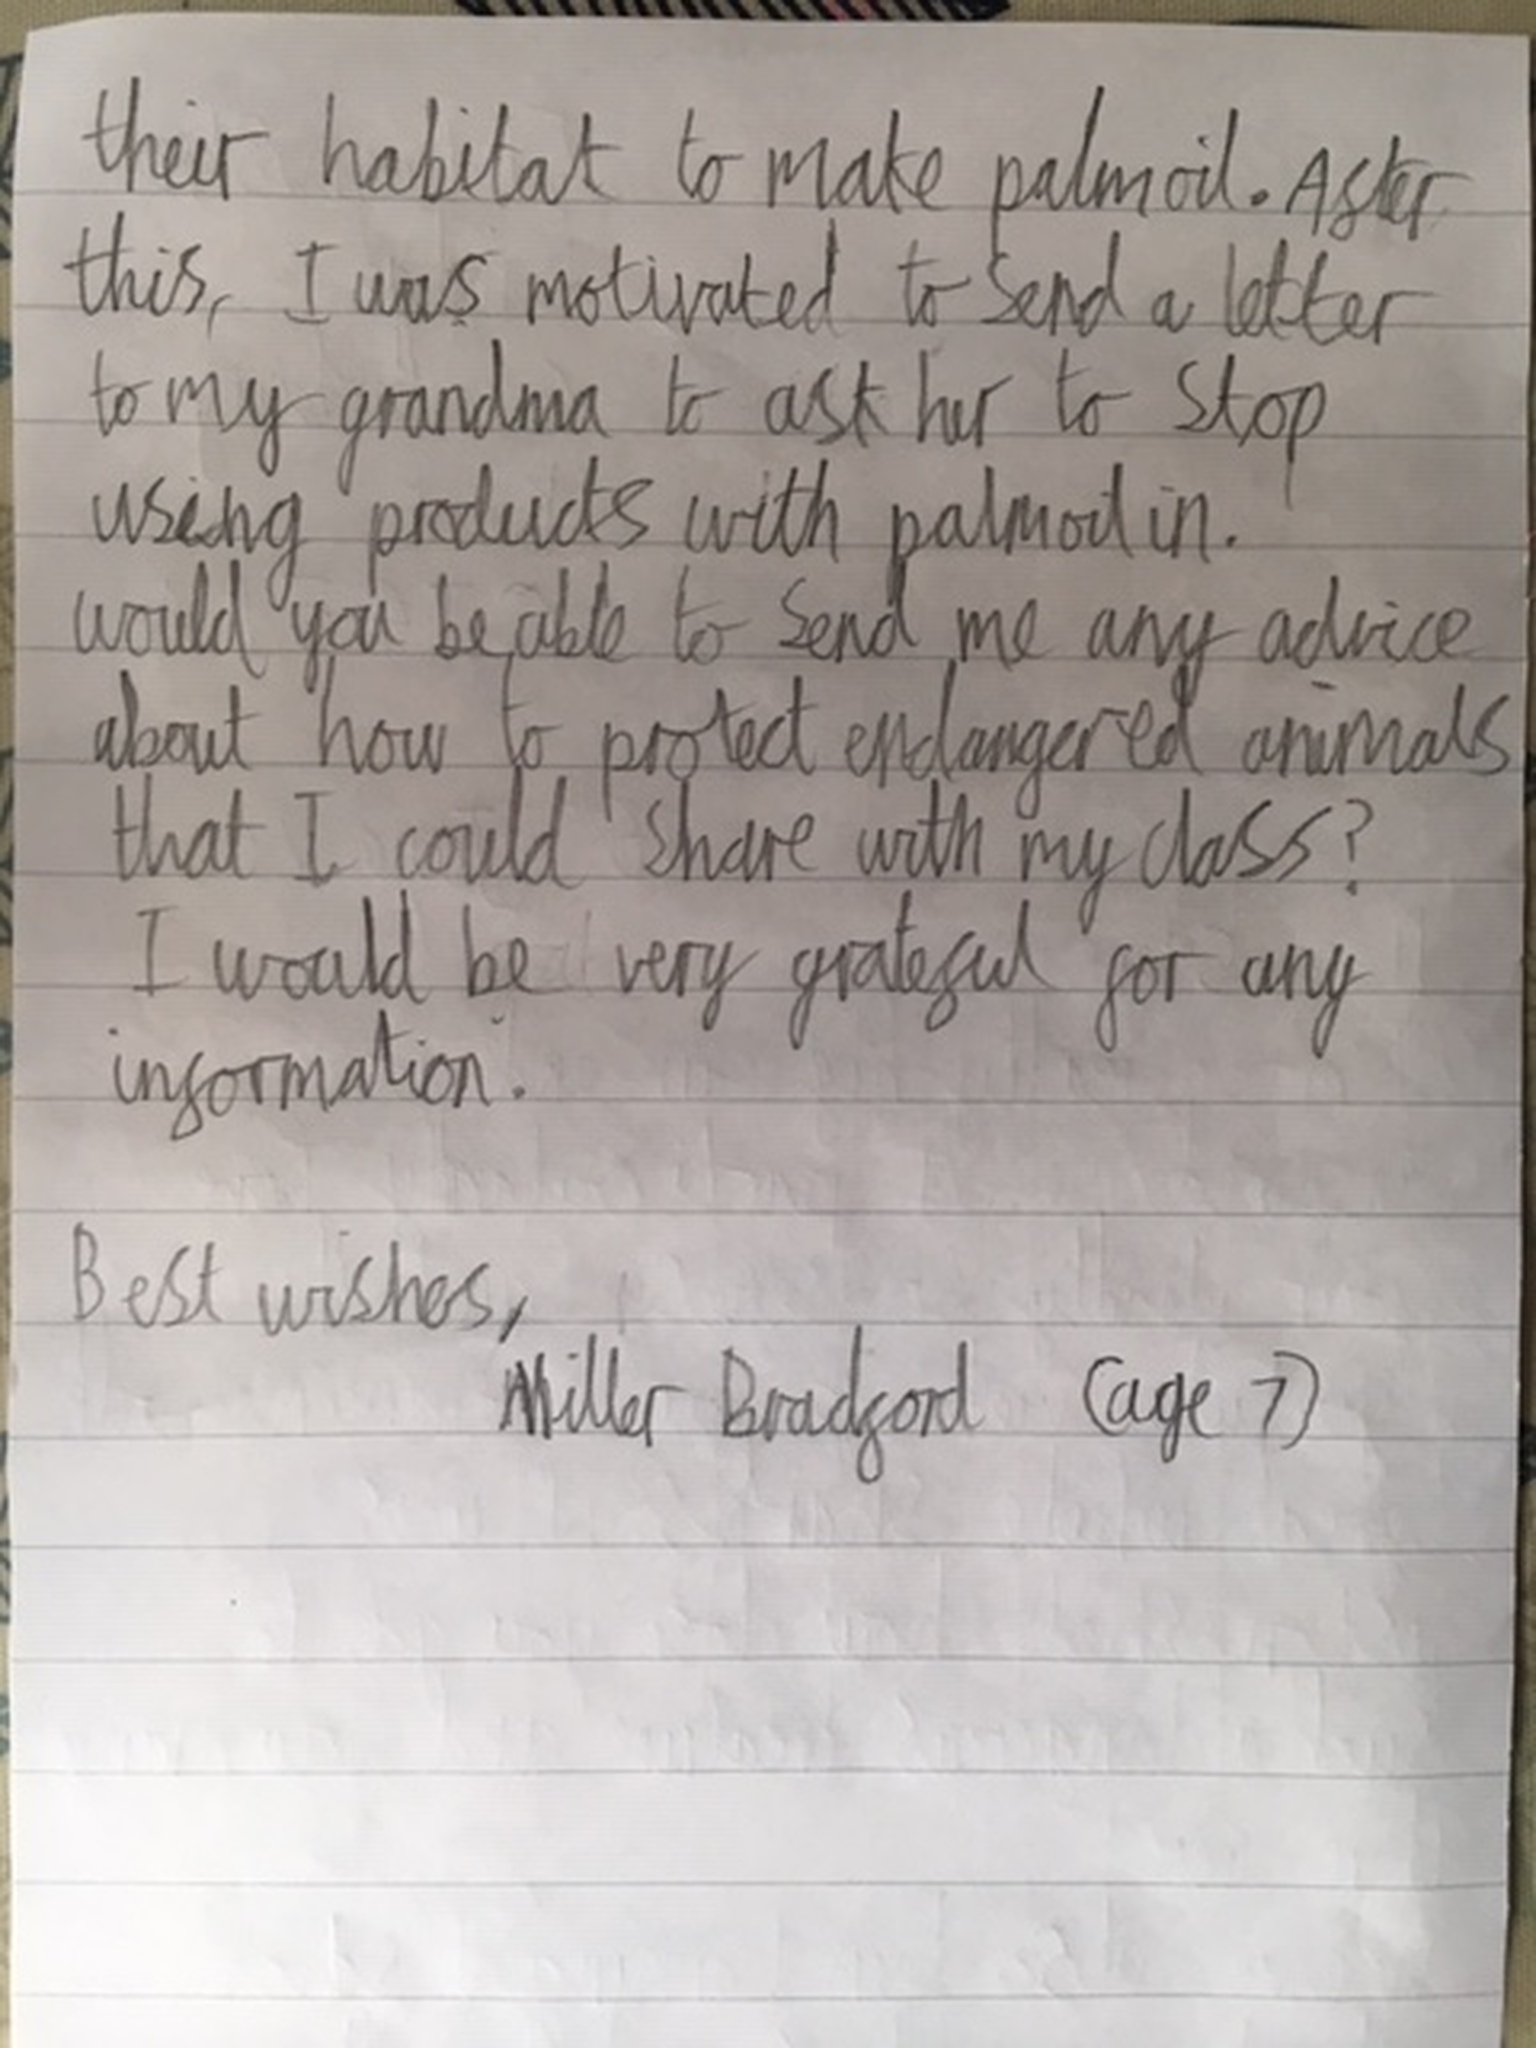 their habitat to make palmoil. After
this, I was motivated to send a letter
to my grandma to ask her to stop
using products with palmoil in.
would you be able to send me any advice
about how to protect endangered animals
that I could share with my class?
I would be very grateful for any
information.
Best wishes,
Miller Bradford (age 7)